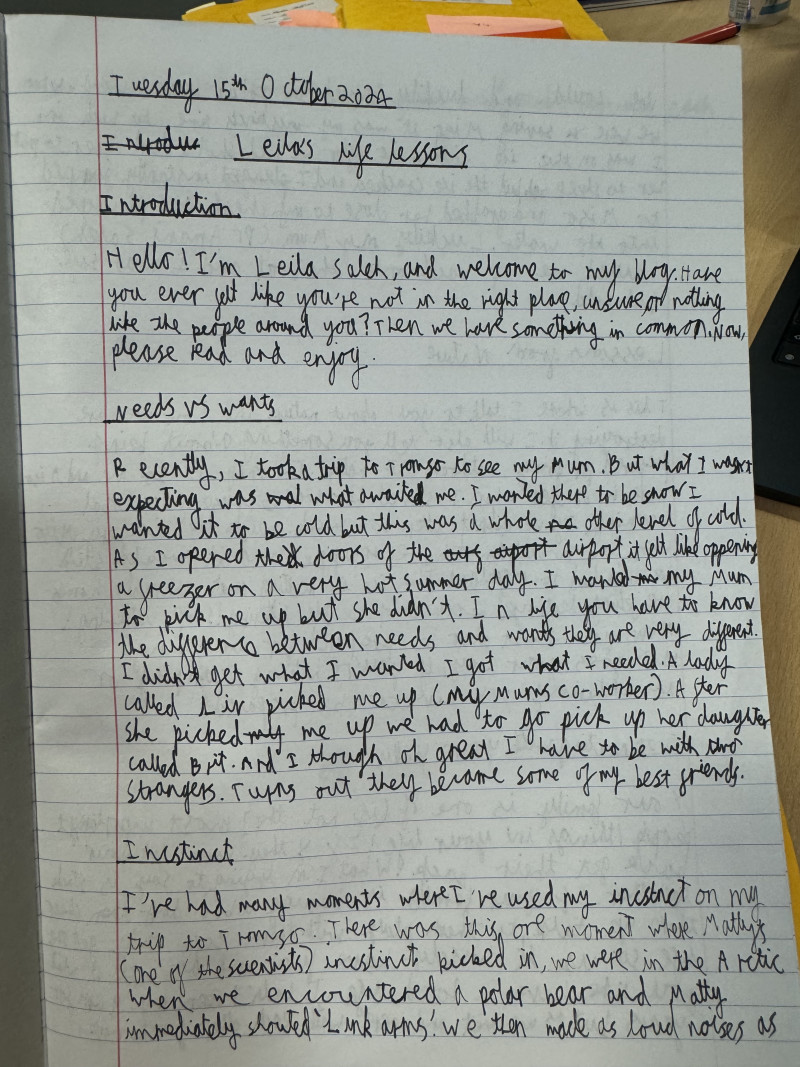 Tuesday 15th October 2024
Introduc Leila's life lessons
Introduction
Hello! I'm Leila Saleh, and welcome to my blog. Have
you ever felt like you're not in the right place, unsure, or nothing
like the people around you? Then we have something in common. Now,
please read and enjoy.
Needs vs wants
Recently, I took a trip to Tromso to see my Mum. But what I wasn't
expecting was what awaited me. I wanted there to be snow I
wanted it to be cold but this was a whole other level of cold.
As I opened the doors of the aiport airport it felt like oppening
a freezer on a very hot summer day. I wanted my Mum
to pick me up but she didn't. In life you have to know
the difference between needs and wants they are very different.
I didn't get what I wanted I got what I needed. A lady
called Liv picked me up (my Mums co-worker). After
she picked my me up we had to go pick up her daughter
called Brit. And I though oh great I have to be with two
strangers. Turns out they became some of my best friends.
Incstinct
I've had many moments where I've used my incstnct on my
trip to Tromso. There was this one moment where Matty's
(one of the scientists) incstinct kicked in, we were in the Arctic
when we encountered a polar bear and Matty
immediately shouted 'Link arms!' we then made as loud noises as